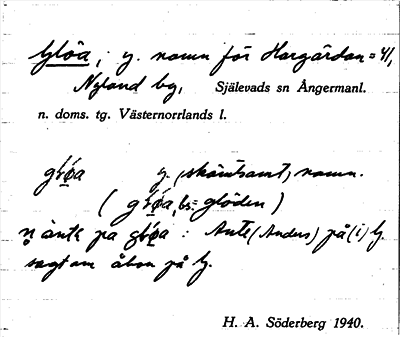 Glöa, y. namn för Hargården = 4/1,
Nyland by, Själevads sn Ångermanl.
n. doms. tg. Västernorrlands l.
gløa y. (skämtsamt) namn.
(gløa, bs = glöden)
änte på gløa : Ante (Anders) på (i) G.
sagt om åbon på G.
H. A. Söderberg 1940.